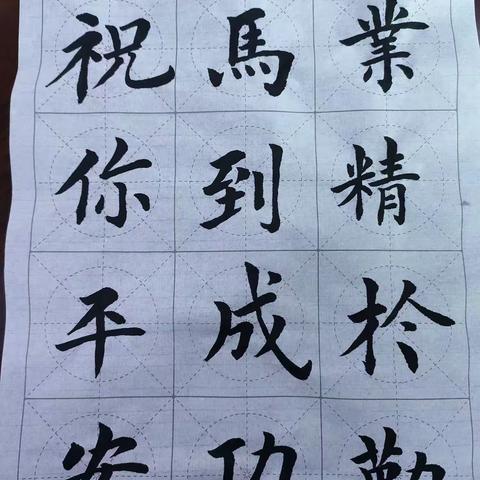 業精於勤
馬到成功
祝你平安